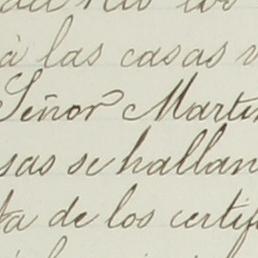 à las casas
Señor Martin
sas se hallan
ta de los certif